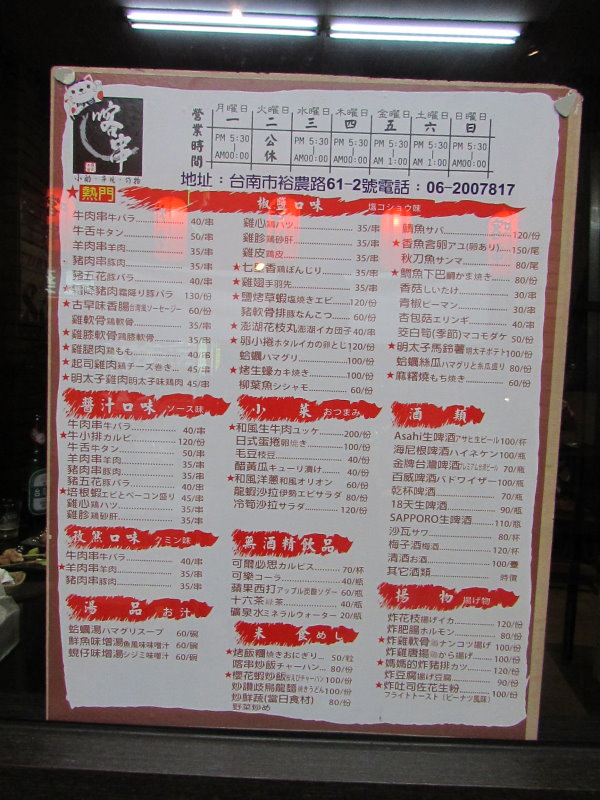 喀串
小酌・串燒・炸物
營業時間
月曜日 火曜日 水曜日 木曜日 金曜日 土曜日 日曜日
一 二 三 四 五 六 日
PM 5:30 公休 PM 5:30 PM 5:30 PM 5:30 PM 5:30 PM 5:30
AM00:00 AM00:00 AM00:00 AM 1:00 AM 1:00 AM00:00
地址：台南市裕農路61-2號電話：06-2007817
★熱門
椒鹽口味 塩コショウ味
牛肉串牛バラ 40/串
牛舌牛タン 50/串
羊肉串羊肉 35/串
豬肉串豚肉 35/串
豬五花豚バラ 40/串
★霜降豬肉霜降り豚バラ 130/份
★古早味香腸台湾風ソーセージー 60/份
雞軟骨鶏軟骨 35/串
★雞膝軟骨鶏膝軟骨 35/串
★雞腿肉鶏もも 40/串
★起司雞肉鶏チーズ巻き 45/串
★明太子雞肉明太子味鶏肉 45/串
雞心鶏ハツ 35/串
雞胗鶏砂肝 35/串
雞皮鶏皮 35/串
★七里香鶏ぼんじり 35/串
★雞翅手羽先 35/串
★鹽烤草蝦塩焼きエビ 120/份
豬軟骨排豚なんこつ 60/份
★澎湖花枝丸澎湖イカ団子 40/串
★卵小捲ホタルイカの卵とじ 120/份
蛤蠣ハマグリ 100/份
★烤生蠔カキ焼き 100/份
柳葉魚シシャモ 60/份
鯖魚サバ 120/份
★香魚含卵アユ(卵あり) 150/尾
秋刀魚サンマ 80/尾
★鯛魚下巴鯛かま焼き 80/份
香菇しいたけ 30/串
青椒ピーマン 30/串
杏包菇エリンギ 40/串
茭白筍(季節)マコモダケ 50/份
★明太子馬鈴薯明太子ポテト 100/份
蛤蠣絲瓜ハマグリと糸瓜盛り 80/份
★麻糬燒もち焼き 60/份
醬汁口味 ソース味
牛肉串牛バラ 40/串
★牛小排カルビ 120/份
牛舌牛タン 50/串
羊肉串羊肉 35/串
豬肉串豚肉 35/串
豬五花豚バラ 40/串
★培根蝦エビとベーコン盛り 45/串
雞心鶏ハツ 35/串
雞胗鶏砂肝 35/串
孜然口味 クミン味
牛肉串牛バラ 40/串
★羊肉串羊肉 35/串
豬肉串豚肉 35/串
湯品 お汁
蛤蠣湯ハマグリスープ 60/碗
鮮魚味增湯魚風味味噌汁 60/碗
蜆仔味增湯シジミ味噌汁 60/碗
小菜 おつまみ
★和風生牛肉ユッケ 200/份
日式蛋捲卵焼き 100/份
毛豆枝豆 40/份
醋黃瓜キューリ漬け 40/份
★和風洋蔥和風オリオン 60/份
龍蝦沙拉伊勢エビサラダ 80/份
冷筍沙拉サラダ 120/份
無酒精飲品
可爾必思カルピス 70/杯
可樂コーラ 40/瓶
蘋果西打アップル炭酸ソーダー 60/瓶
十六茶緑茶 40/瓶
礦泉水ミネラルウォーター 20/瓶
米食 めし
★烤飯糰焼きおにぎり 50/粒
喀串炒飯チャーハン 80/份
★櫻花蝦炒飯台えびチャーハン 100/份
炒讚歧烏龍麵焼きうどん 100/份
炒鮮蔬(當日食材) 80/份
野菜炒め
酒類
Asahi生啤酒アサヒ生ビール 100/杯
海尼根啤酒ハイネケン 100/瓶
金牌台灣啤酒プレミアム台湾ビール 70/瓶
百威啤酒バドワイザー 100/瓶
乾杯啤酒 70/瓶
18天生啤酒 90/瓶
SAPPORO生啤酒 110/瓶
沙瓦サワー 80/杯
梅子酒梅酒 120/杯
清酒お酒 100/壺
其它酒類 時價
揚物 揚げ物
炸花枝揚げイカ 120/份
炸肥腸ホルモン 80/份
★炸雞軟骨鶏ナンコツ揚げ 100/份
炸雞唐揚鶏から揚げ 100/份
★媽媽的炸豬排カツ 120/份
炸豆腐揚げ豆腐 90/份
★炸吐司佐花生粉 100/份
フライトトースト（ピーナツ風味）